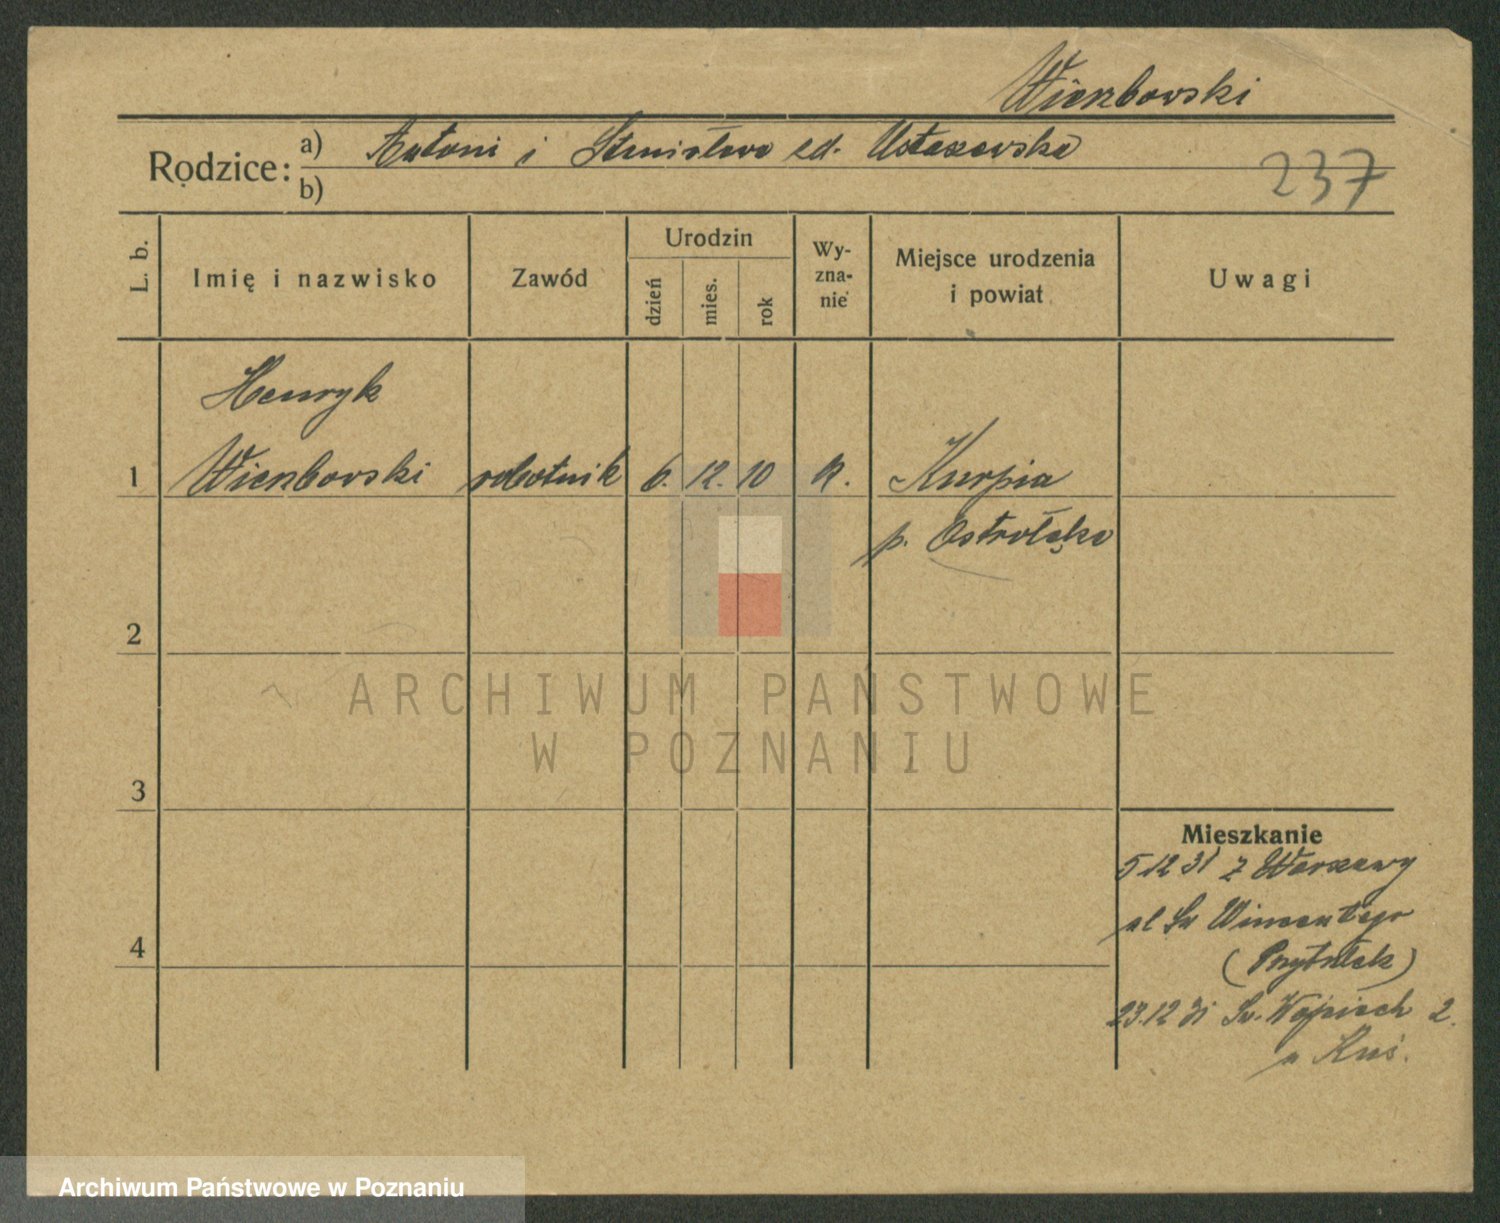 Wierzbowski
Rodzice:
a) Antoni i Stanisława zd. Ustaszewska
b)
237
L. b.
Imię i nazwisko
Zawód
Urodzin
dzień
mies.
rok
Wy-
zna-
nie
Miejsce urodzenia
i powiat
Uwagi
Henryk
1 Wierzbowski robotnik 6. 12. 10 k. Kurpia
p. Ostrołęka
2
ARCHIWUM PAŃSTWOWE
W POZNANIU
3
Mieszkanie
5 12 31 z Warszawy
ul Św Wincentego
4
(Przytułek)
23.12 31 Św. Wojciech 2.
u
Archiwum Państwowe w Poznaniu